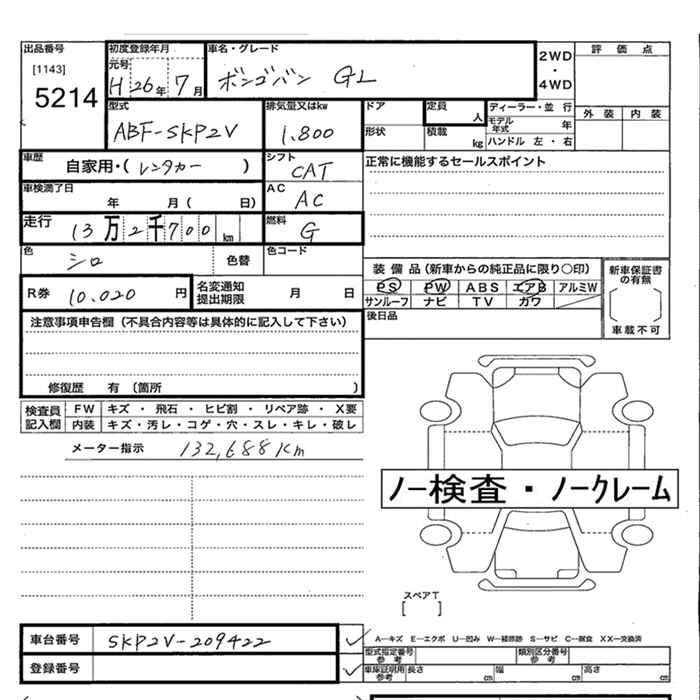 出品番号 初度登録年月 車名・グレード 2WD・4WD 評価点
[1143] 元号
5214 H 26年 7月 ボンゴバン GL
外装 内装
型式 排気量又はkw ドア 定員 人 ディーラー・並行
ABF-SKP2V 1.800 形状 積載 kg モデル年式 年
ハンドル 左・右
車歴 自家用・(レンタカー) シフト CAT 正常に機能するセールスポイント
車検満了日 年 月( 日) AC AC
走行 13万2千700km 燃料 G
色 シロ 色替 色コード
装備品(新車からの純正品に限り○印) 新車保証書の有無
R券 10.020円 名変通知提出期限 月 日 PS PW ABS エアB アルミW
サンルーフ ナビ TV カワ 車載不可
注意事項申告欄(不具合内容等は具体的に記入して下さい) 後日品
修復歴 有 (箇所 )
検査員記入欄 FW キズ・飛石・ヒビ割・リペア跡・X要
内装 キズ・汚レ・コゲ・穴・スレ・キレ・破レ
メーター指示 132,688Km
ノー検査・ノークレーム
スペアT
[ ]
車台番号 SKP2V-209422 A—キズ E—エクボ U—凹み W—補修跡 S—サビ C—腐食 XX—交換済
型式指定番号 参考 類別区分番号 参考
登録番号 車庫証明用 参考 長さ cm 幅 cm 高さ cm